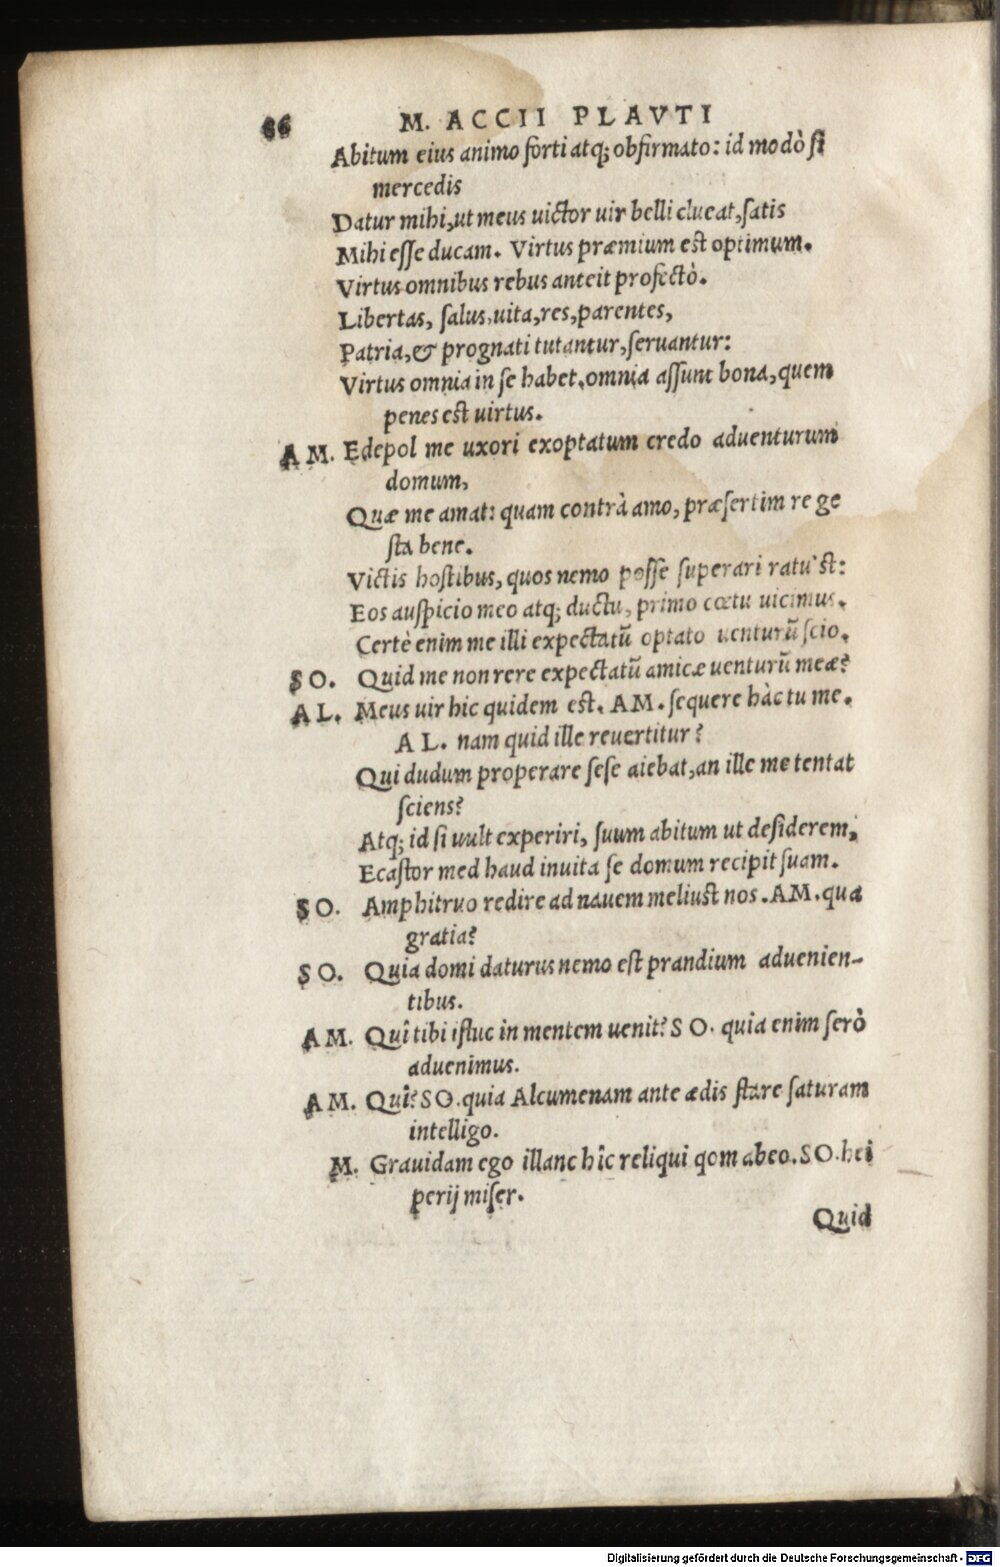 66 M. ACCII PLAVTI
Abitum eius animo forti atq; obfirmato: id modò si
mercedis
Datur mihi, ut meus uictor uir belli clueat, satis
Mihi esse ducam. Virtus præmium est optimum.
Virtus omnibus rebus anteit profectò.
Libertas, salus, uita, res, parentes,
Patria, & prognati tutantur, seruantur:
Virtus omnia in se habet, omnia assunt bona, quem
penes est uirtus.
AM. Edepol me uxori exoptatum credo aduenturum
domum,
Quæ me amat: quam contrà amo, præsertim re ge
sta bene.
Victis hostibus, quos nemo posse superari ratu'st:
Eos auspicio meo atq; ductu, primo cœtu uicimus.
Certè enim me illi expectatũ optato uenturũ scio.
SO. Quid me non rere expectatũ amicæ uenturũ meæ?
AL. Meus uir hic quidem est. AM. sequere hàc tu me.
AL. nam quid ille reuertitur?
Qui dudum properare sese aiebat, an ille me tentat
sciens?
Atq; id si uult experiri, suum abitum ut desiderem,
Ecastor med haud inuita se domum recipit suam.
SO. Amphitruo redire ad nauem meliust nos. AM. qua
gratia?
SO. Quia domi daturus nemo est prandium aduenien-
tibus.
AM. Quî tibi istuc in mentem uenit? SO. quia enim serò
aduenimus.
AM. Quî? SO. quia Alcumenam ante ædis stare saturam
intelligo.
M. Grauidam ego illanc hîc reliqui qom abeo. SO. hei
perij miser.
Quid
Digitalisierung gefördert durch die Deutsche Forschungsgemeinschaft - DFG